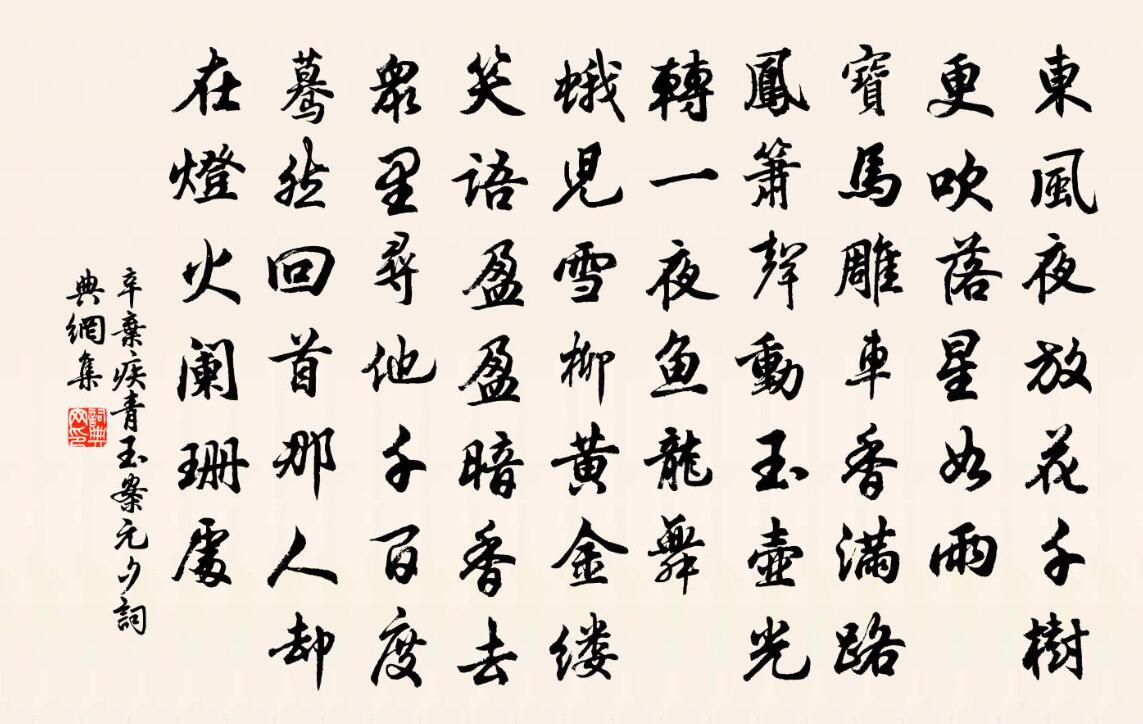 東風夜放花千樹
更吹落星如雨
寶馬雕車香滿路
鳳簫聲動玉壺光
轉一夜魚龍舞
蛾兒雪柳黄金縷
笑語盈盈暗香去
衆里尋他千百度
驀然回首那人却
在燈火闌珊處
辛棄疾青玉案元夕詞
典網集
詞典